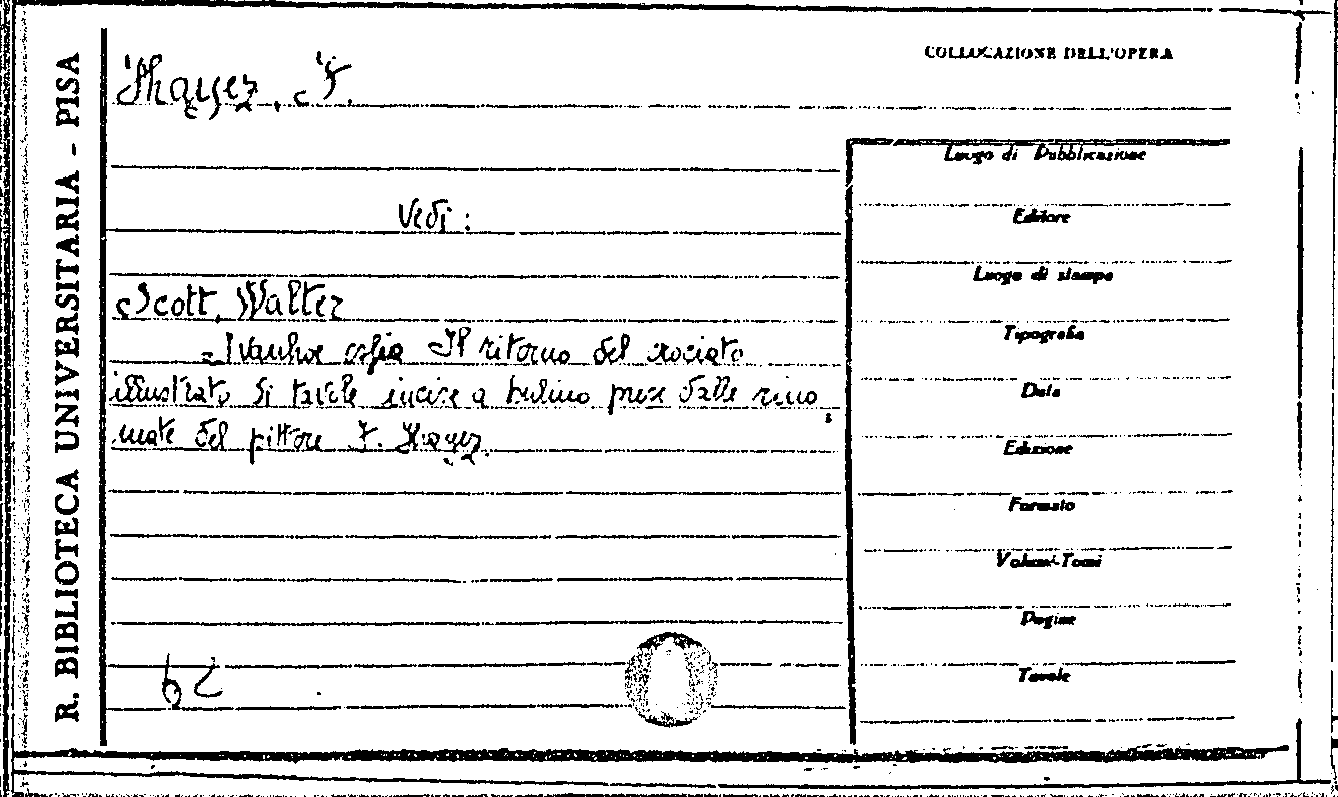 R. BIBLIOTECA UNIVERSITARIA - PISA
COLLOCAZIONE DELL'OPERA
Hayez, F.
Vedi:
Scott, Walter
- Ivanhoe ossia Il ritorno del crociato
illustrato di tavole incise a bulino prese dalle rino
mate del pittore F. Hayez
62
Luogo di Pubblicazione
Editore
Luogo di stampa
Tipografia
Data
Edizione
Formato
Volumi-Tomi
Pagine
Tavole